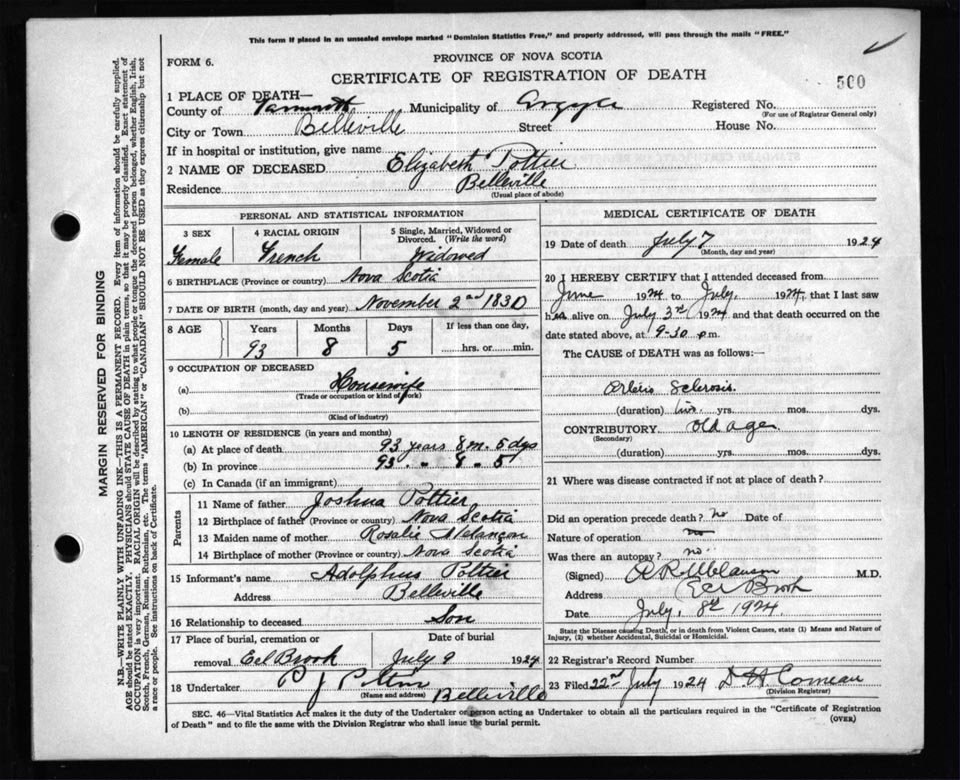 This form if placed in an unsealed envelope marked "Dominion Statistics Free," and properly addressed, will pass through the mails "FREE."
FORM 6.
PROVINCE OF NOVA SCOTIA
CERTIFICATE OF REGISTRATION OF DEATH
500
1 PLACE OF DEATH—
County of Yarmouth Municipality of Argyle Registered No.
(For use of Registrar General only)
City or Town Belleville Street House No.
If in hospital or institution, give name
2 NAME OF DECEASED Elizabeth Pottier
Residence Belleville
(Usual place of abode)
PERSONAL AND STATISTICAL INFORMATION
3 SEX 4 RACIAL ORIGIN 5 Single, Married, Widowed or Divorced. (Write the word)
Female French Widowed
6 BIRTHPLACE (Province or country) Nova Scotia
7 DATE OF BIRTH (month, day and year) November 2nd 1830
8 AGE Years Months Days If less than one day,
93 8 5 hrs. or min.
9 OCCUPATION OF DECEASED
(a) Housewife
(Trade or occupation or kind of work)
(b)
(Kind of industry)
10 LENGTH OF RESIDENCE (in years and months)
(a) At place of death 93 years 8 m. 5 dys
(b) In province 93 . - 8 - 5
(c) In Canada (if an immigrant)
Parents
11 Name of father Joshua Pottier
12 Birthplace of father (Province or country) Nova Scotia
13 Maiden name of mother Rosalie Melancon
14 Birthplace of mother (Province or country) Nova Scotia
15 Informant's name Adolphus Pottier
Address Belleville
16 Relationship to deceased Son
17 Place of burial, cremation or Date of burial
removal Eel Brook July 9 1924
18 Undertaker P J Pottier
(Name and address) Belleville
MEDICAL CERTIFICATE OF DEATH
19 Date of death July 7 1924
(Month, day and year)
20 I HEREBY CERTIFY that I attended deceased from
June 1924 to July, 1924, that I last saw
her alive on July 3rd 1924 and that death occurred on the
date stated above, at 9-30 pm.
The CAUSE of DEATH was as follows:—
Arterio Sclerosis.
(duration) yrs. mos. dys.
CONTRIBUTORY. Old age
(Secondary)
(duration) yrs. mos. dys.
21 Where was disease contracted if not at place of death?
Did an operation precede death? no Date of
Nature of operation no
Was there an autopsy? no
(Signed) M.D.
Address Eel Brook
Date July, 8th 1924.
State the Disease causing Death, or in death from Violent Causes, state (1) Means and Nature of Injury, (2) whether Accidental, Suicidal or Homicidal.
22 Registrar's Record Number
23 Filed 22nd July 1924 D H Comeau
(Division Registrar)
SEC. 46—Vital Statistics Act makes it the duty of the Undertaker or person acting as Undertaker to obtain all the particulars required in the "Certificate of Registration
of Death" and to file the same with the Division Registrar who shall issue the burial permit. (OVER)
MARGIN RESERVED FOR BINDING
N.B.—WRITE PLAINLY WITH UNFADING INK—THIS IS A PERMANENT RECORD. Every item of information should be carefully supplied.
AGE should be stated EXACTLY. PHYSICIANS should STATE CAUSE OF DEATH in plain terms, so that it may be properly classified. Exact statement of
OCCUPATION is very important. RACIAL ORIGIN will be described by stating to what people or tongue the deceased person belonged, whether English, Irish,
Scotch, French, German, Russian, Ruthenian, etc. The terms "AMERICAN" or "CANADIAN" SHOULD NOT BE USED as they express citizenship but not
a race or people. See instructions on back of Certificate.